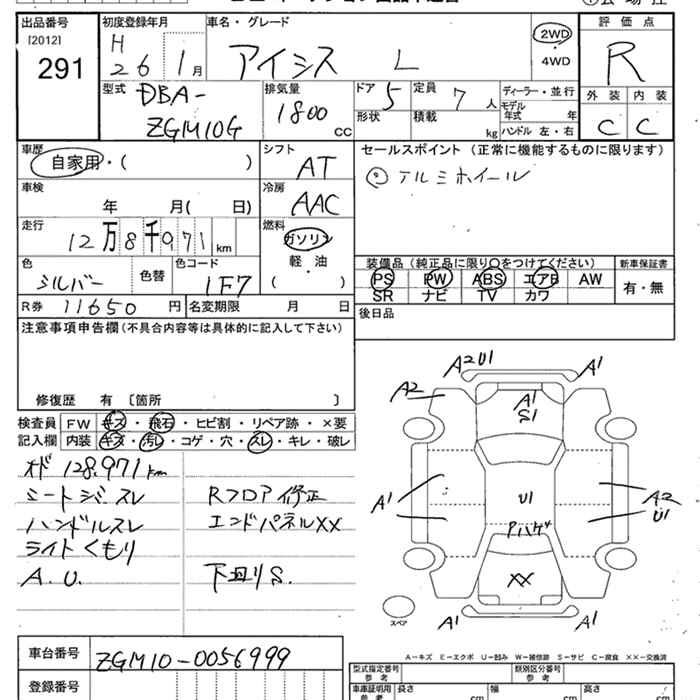 出品番号 初度登録年月 車名・グレード 評価点
[2012] H 2WD
291 26 1月 アイシス L 4WD R
型式 排気量 ドア 定員 ディーラー・並行 外装 内装
DBA- 1800 CC 5 7人 モデル年式 年 C C
ZGM10G 形状 積載 kg ハンドル 左・右
車歴 シフト セールスポイント (正常に機能するものに限ります)
自家用・( ) AT ◎アルミホイール
車検 冷房
年 月( 日) AAC
走行 燃料
12万8千971km ガソリン
色 色コード 軽・油 装備品(純正品に限り○をつけてください) 新車保証書
シルバー 色替 1F7 ( ) PS PW ABS エアB AW 有・無
R券 11650円 名変期限 月 日 SR ナビ TV カワ
注意事項申告欄(不具合内容等は具体的に記入して下さい) 後日品
修復歴 有 〔箇所 〕
検査員 FW キズ・飛石・ヒビ割・リペア跡・×要
記入欄 内装 キズ・汚レ・コゲ・穴・スレ・キレ・破レ
オド 128,971km
シートジミスレ Rフロア修正
ハンドルスレ エンドパネルXX
ライトくもり
A.U. 下廻りS.
A2U1 A1
A2 A1 A1
S1
A1 U1 A2
Pハゲ U1
XX
A1 A1
スペア
A-キズ E-エクボ U-凹み W-補修跡 S-サビ C-腐食 XX-交換済
車台番号 ZGM10-0056999
登録番号
型式指定番号 参考 類別区分番号 参考
車庫証明用 参考 長さ cm 幅 cm 高さ cm